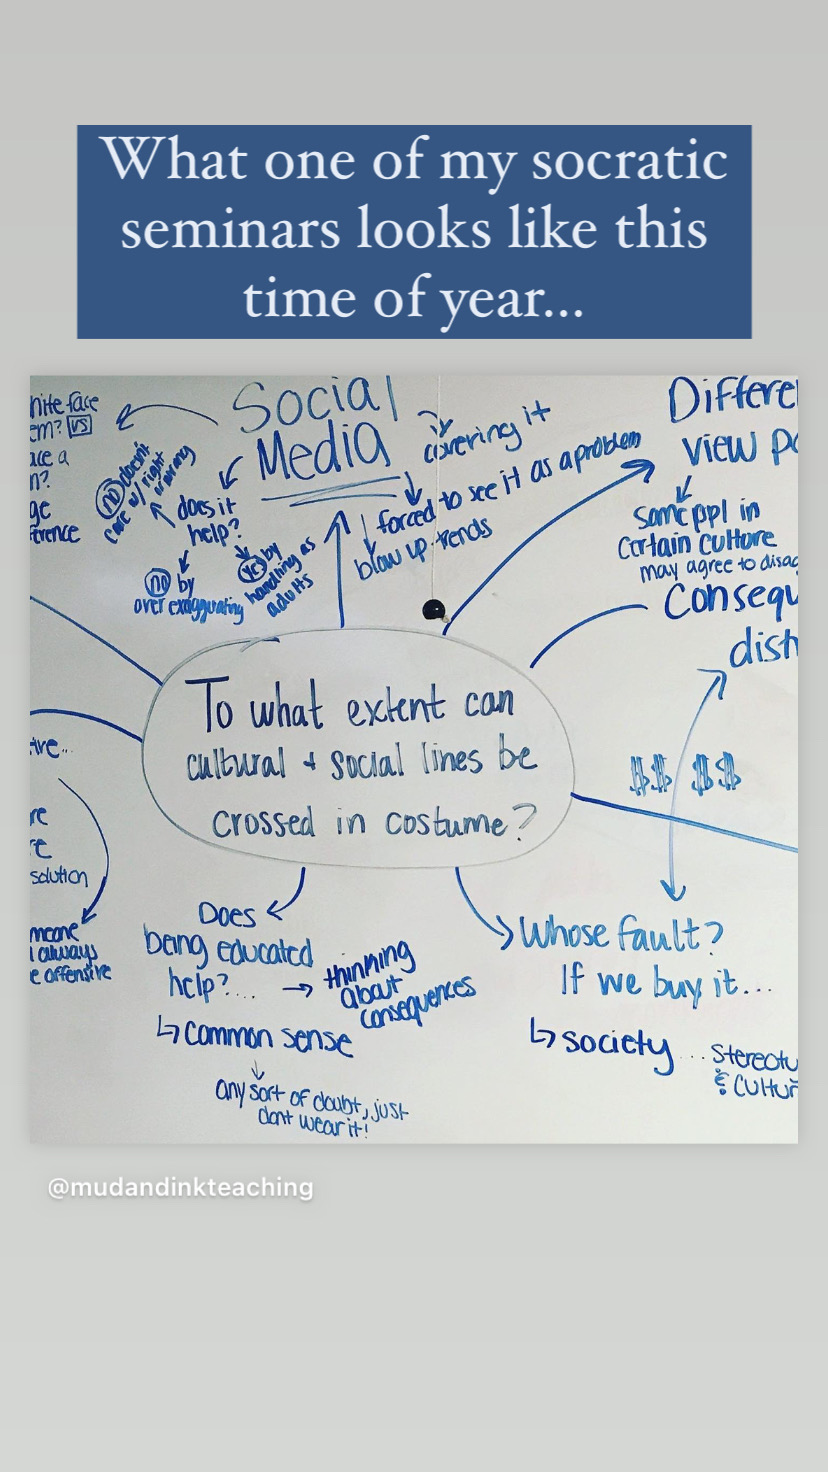 What one of my socratic
seminars looks like this
time of year...
hite face
em? VS
ace a
n?
ge
ference
Social
Media
covering it
forced to see it as a problem
blow up trends
does it
help?
no doesn't
care w/ right
or wrong
no by
over exaggurating
yes by
handling as
adults
Differe
view po
some ppl in
certain culture
may agree to disag
Consequ
dish
$$ $$
To what extent can
cultural + social lines be
crossed in costume?
ive...
re
re
solution
meone
l always
e offensive
Does
being educated
help?....
thinking
about
consequences
common sense
any sort of doubt, just
dont wear it!
Whose fault?
If we buy it...
society ...
stereoty
& cultur
@mudandinkteaching